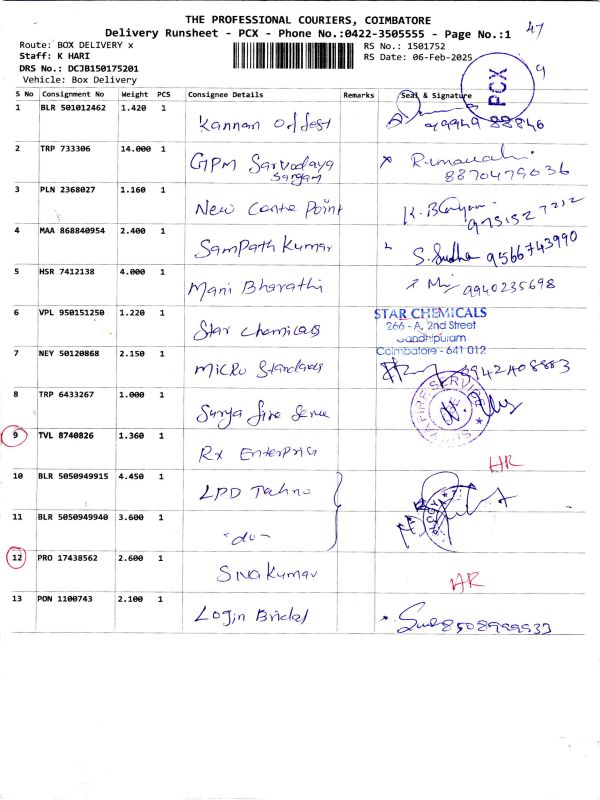 THE PROFESSIONAL COURIERS, COIMBATORE
Delivery Runsheet - PCX - Phone No.:0422-3505555 - Page No.:1
47
Route: BOX DELIVERY x
RS No.: 1501752
Staff: K HARI
RS Date: 06-Feb-2025
DRS No.: DCJB150175201
Vehicle: Box Delivery
PCX
S No Consignment No Weight PCS Consignee Details Remarks Seal & Signature
1 BLR 501012462 1.420 1 Kannan Offset 99949 88846
2 TRP 733306 14.000 1 GPM Sarvodaya
Sangam 8870479036
3 PLN 2368027 1.160 1 New Centre Point
4 MAA 868840954 2.400 1 Sampath Kumar S. Sudha 9566743990
5 HSR 7412138 4.000 1 Mani Bharathi 9940235698
6 VPL 950151250 1.220 1 Star Chemicals
STAR CHEMICALS
266 - A, 2nd Street
Gandhipuram
Coimbatore - 641 012
7 NEY 50120868 2.150 1 Micro Standards
8 TRP 6433267 1.000 1 Surya fire
FIRE SERVICE
SURYA
9 TVL 8740826 1.360 1 Rx Enterprises HR
10 BLR 5050949915 4.450 1 LPD Techno
11 BLR 5050949940 3.600 1 -do-
12 PRO 17438562 2.600 1 Sivakumar HR
13 PON 1100743 2.100 1 Login Bridal